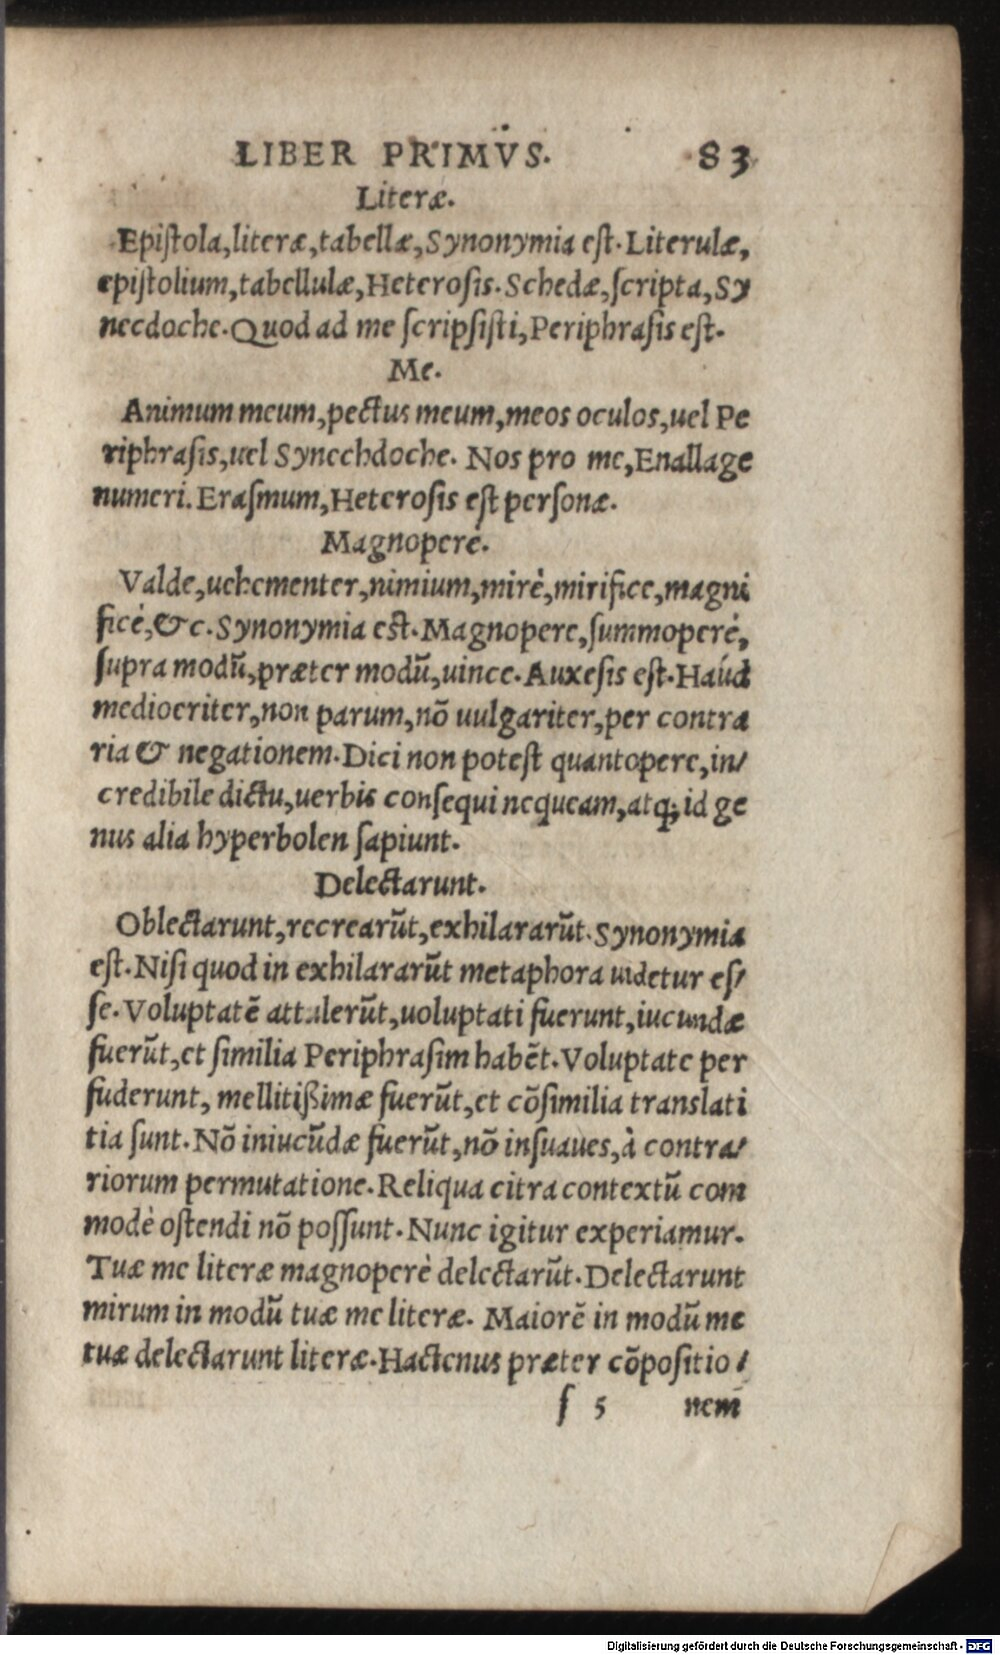 LIBER PRIMVS. 83
Literæ.
Epistola, literæ, tabellæ, Synonymia est. Literulæ,
epistolium, tabellulæ, Heterosis. Schedæ, scripta, Sy
necdoche. Quod ad me scripsisti, Periphrasis est.
Me.
Animum meum, pectus meum, meos oculos, uel Pe
riphrasis, uel Synechdoche. Nos pro me, Enallage
numeri. Erasmum, Heterosis est personæ.
Magnoperè.
Valde, uehementer, nimium, mirè, mirifice, magni
ficè, &c. Synonymia est. Magnopere, summoperè,
supra modũ, præter modũ, uince. Auxesis est. Haúd
mediocriter, non parum, nõ uulgariter, per contra
ria & negationem. Dici non potest quantopere, in/
credibile dictu, uerbis consequi nequeam, atq; id ge
nus alia hyperbolen sapiunt.
Delectarunt.
Oblectarunt, recrearũt, exhilararũt. Synonymia
est. Nisi quod in exhilararũt metaphora uidetur es/
se. Voluptatẽ attulerũt, uoluptati fuerunt, iucundæ
fuerũt, et similia Periphrasim habẽt. Voluptate per
fuderunt, mellitißimæ fuerũt, et cõsimilia translati
tia sunt. Nõ iniucũdæ fuerũt, nõ insuaues, à contra/
riorum permutatione. Reliqua citra contextũ com
modè ostendi nõ possunt. Nunc igitur experiamur.
Tuæ me literæ magnoperè delectarũt. Delectarunt
mirum in modũ tuæ me literæ. Maiorẽ in modũ me
tuæ delectarunt literæ. Hactenus præter cõpositio/
f 5 nem
Digitalisierung gefördert durch die Deutsche Forschungsgemeinschaft - DFG